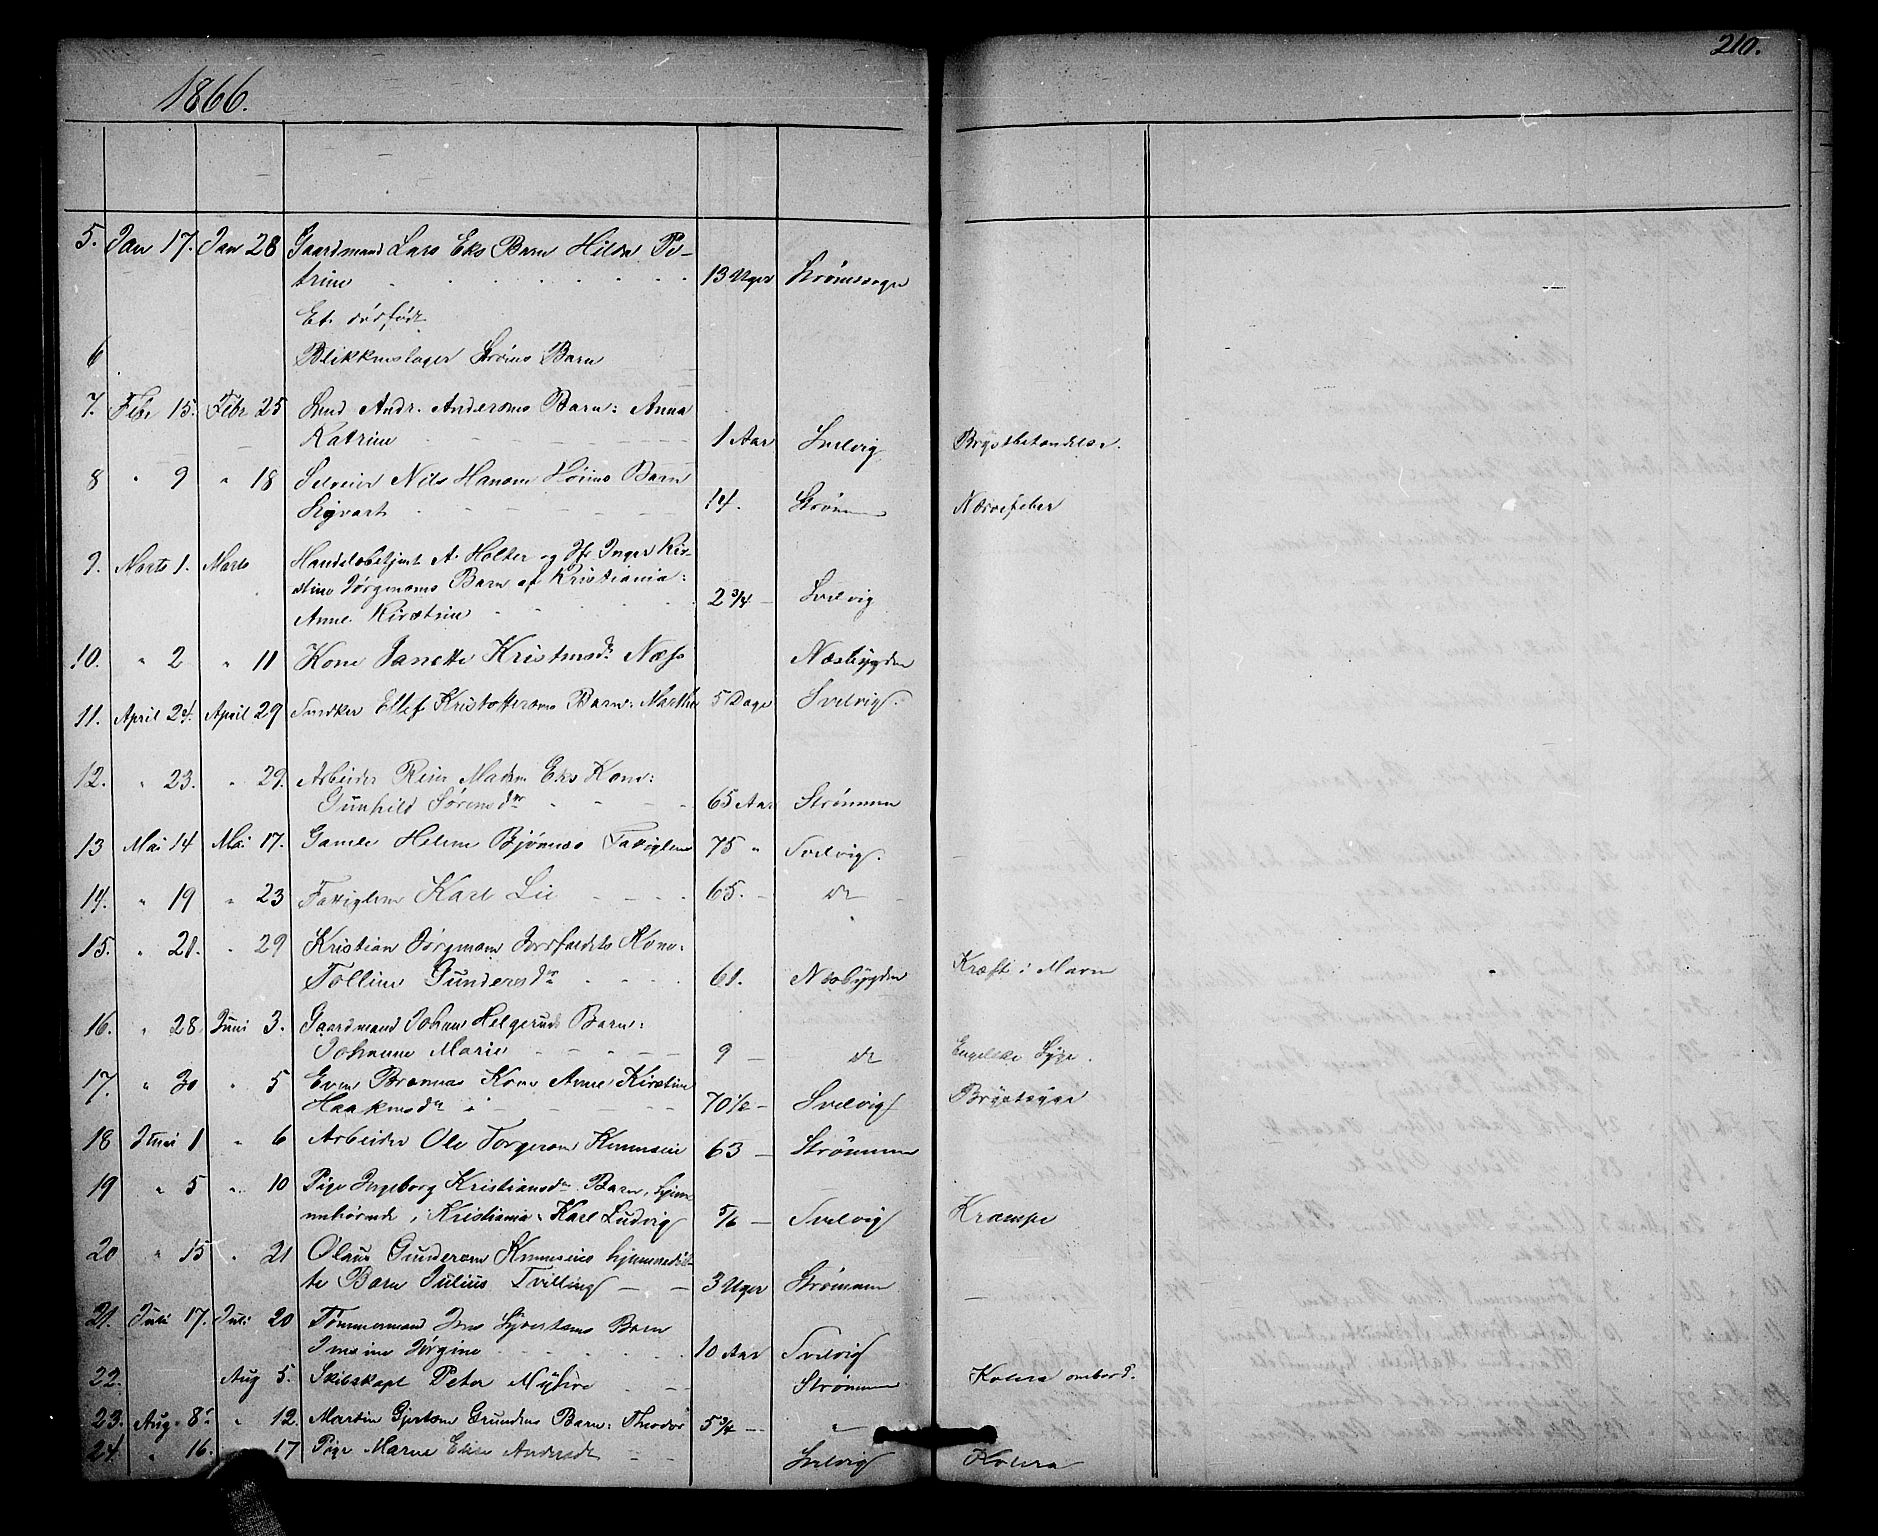 210.
1866.
5. Jan 17. Jan 28 Gaardmand Lars Eks Barn Hilda Pe-
trine 13 Uger Strømsogn
Et dødfødt
6 Blikkenslager Strøms Barn
7. Febr 15. Febr 25 Lund Andr. Andersens Barn: Anna
Katrine 1 Aar Svelvig Brystbetændelse.
8 " 9 " 18 Nils Hansen Barn
Sigvart 14. Strømm Nervefeber
9. Marts 1. Marts Handelsbetjent A. Holter og Inger Kir-
stine Jørgensens Barn af Kristiania:
Anne Kirstine 2 3/4 — Svelvig
10. " 2 " 11 Kone Janette Kristensdr. Næss Næsbygden
11. April 24. April 29 Snedker Ellef Kristoffersens Barn: Marthe 5 Dage Svelvig.
12. " 23. " 29. Arbeider Madsen Eks Kone:
Gunhild Sørensdr 65 Aar Strømmen
13 Mai 14 Mai 17. Gamle Helene Bjørnsen Fattiglem 75 " Svelvig.
14. " 19 " 23 Fattiglem Karl Lie 65. — do
15. " 21. " 29 Kristian Jørgensen Jordfaldets Kone:
Golline Gundersdr 61. Næsbygden Kræft i Maven
16. " 28. Juni 3. Gaardmand Johan Helgeruds Barn:
Johanne Marie 9 — do Engelske Syge.
17. " 30 " 5 Even Brennas Kone Anne Kirstine
Haakensdr 70 1/2 — Svelvig Brystsyge
18 Juni 1 " 6 Arbeider Ole Torgersen 63 — Strømmen
19 " 5 " 10 Pige Ingeborg Kristiansdr Barn, hjem-
mehørende i Kristiania: Karl Ludvig 5/6 — Svelvig Krampe
20 " 15 " 21 Olaus Gundersen hjemmedøb-
te Barn Julius Tvilling 3 Uger Strømmen
21. Juli 17. Juli 20 Tømmermand Jens Syvertsens Barn
Jørgine 10 Aar Svelvig
22. Aug 5. Skibskapt Peter Myhre Strømmen Kolera ombord.
23. Aug. 8. " 12. Martin Gjertsen Grundens Barn: Theodor 5 3/4 — "
24. " 16. 17 Pige Maren Elise Andersdr Svelvig Kolera